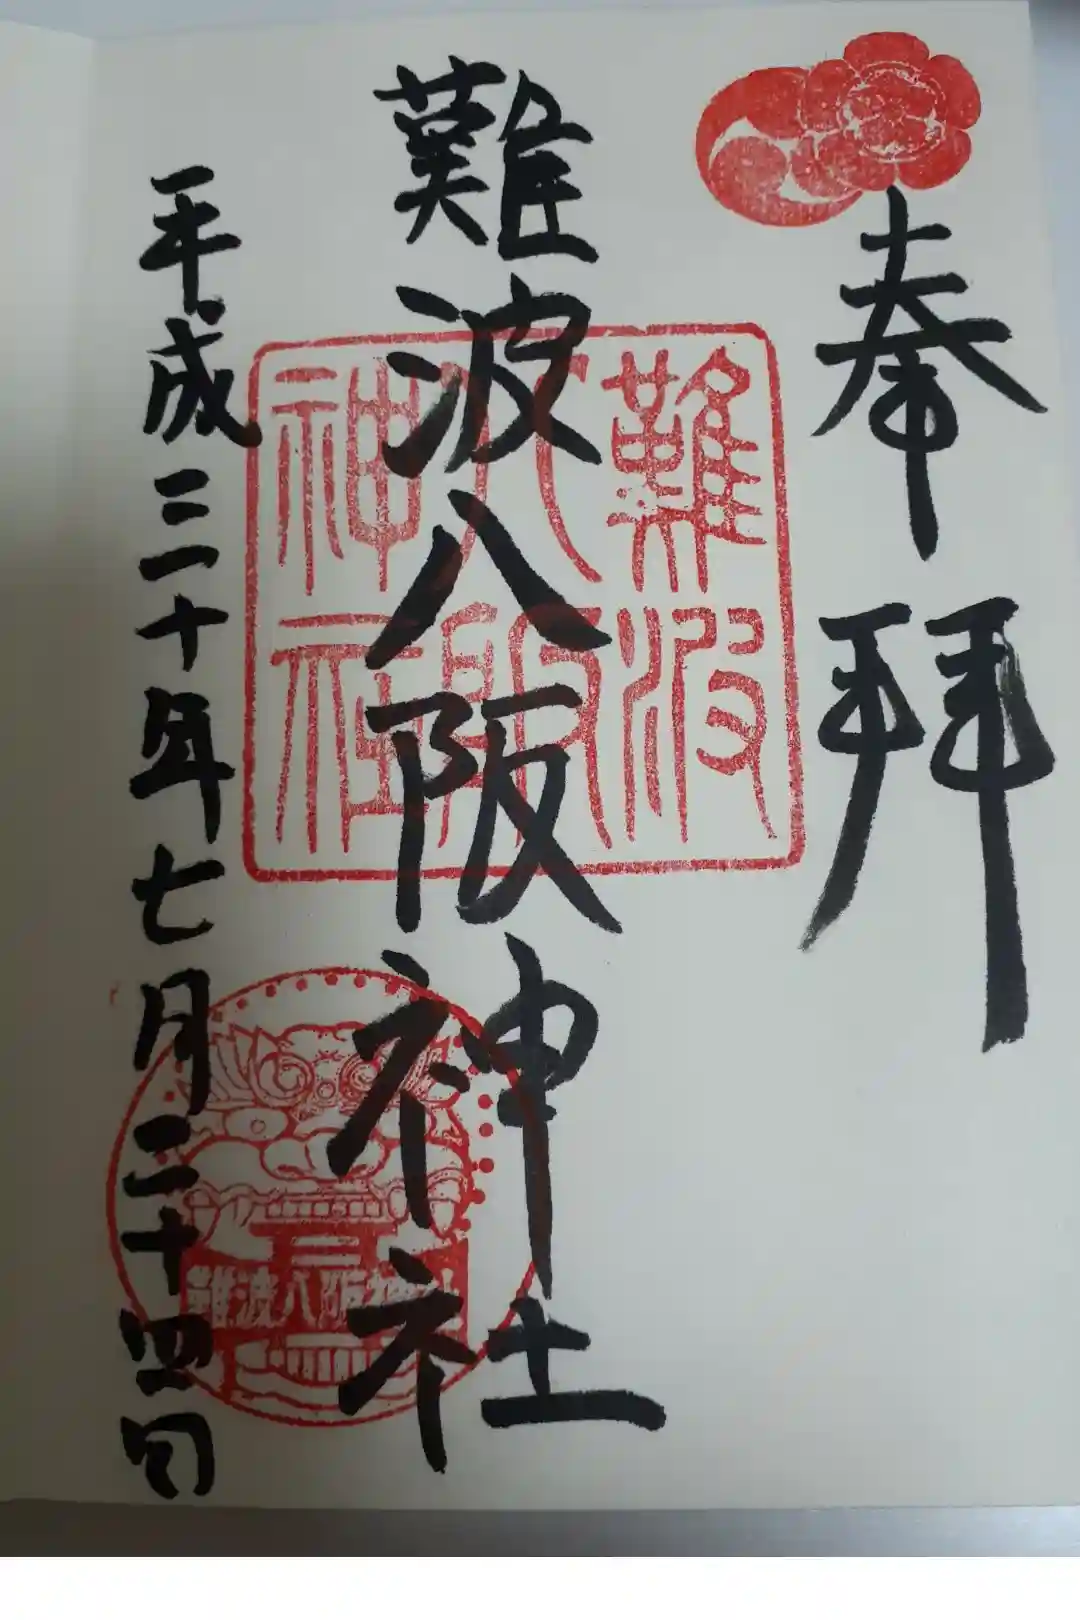 奉拝
難波八阪神社
難波
八阪
神社
難波八阪神社
平成三十年七月二十四日